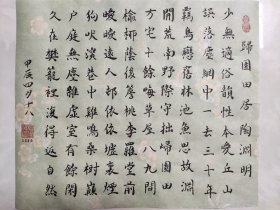 歸園田居 陶淵明
少無適俗韻性本愛丘山
誤落塵網中一去三十年
羈鳥戀舊林池魚思故淵
開荒南野際守拙歸園田
方宅十餘畝草屋八九間
榆柳蔭後簷桃李羅堂前
曖曖遠人邨依依墟裏煙
狗吠深巷中雞鳴桑樹巔
户庭無塵雜虛室有餘閒
久在樊籠裡復得返自然
甲辰四月十八